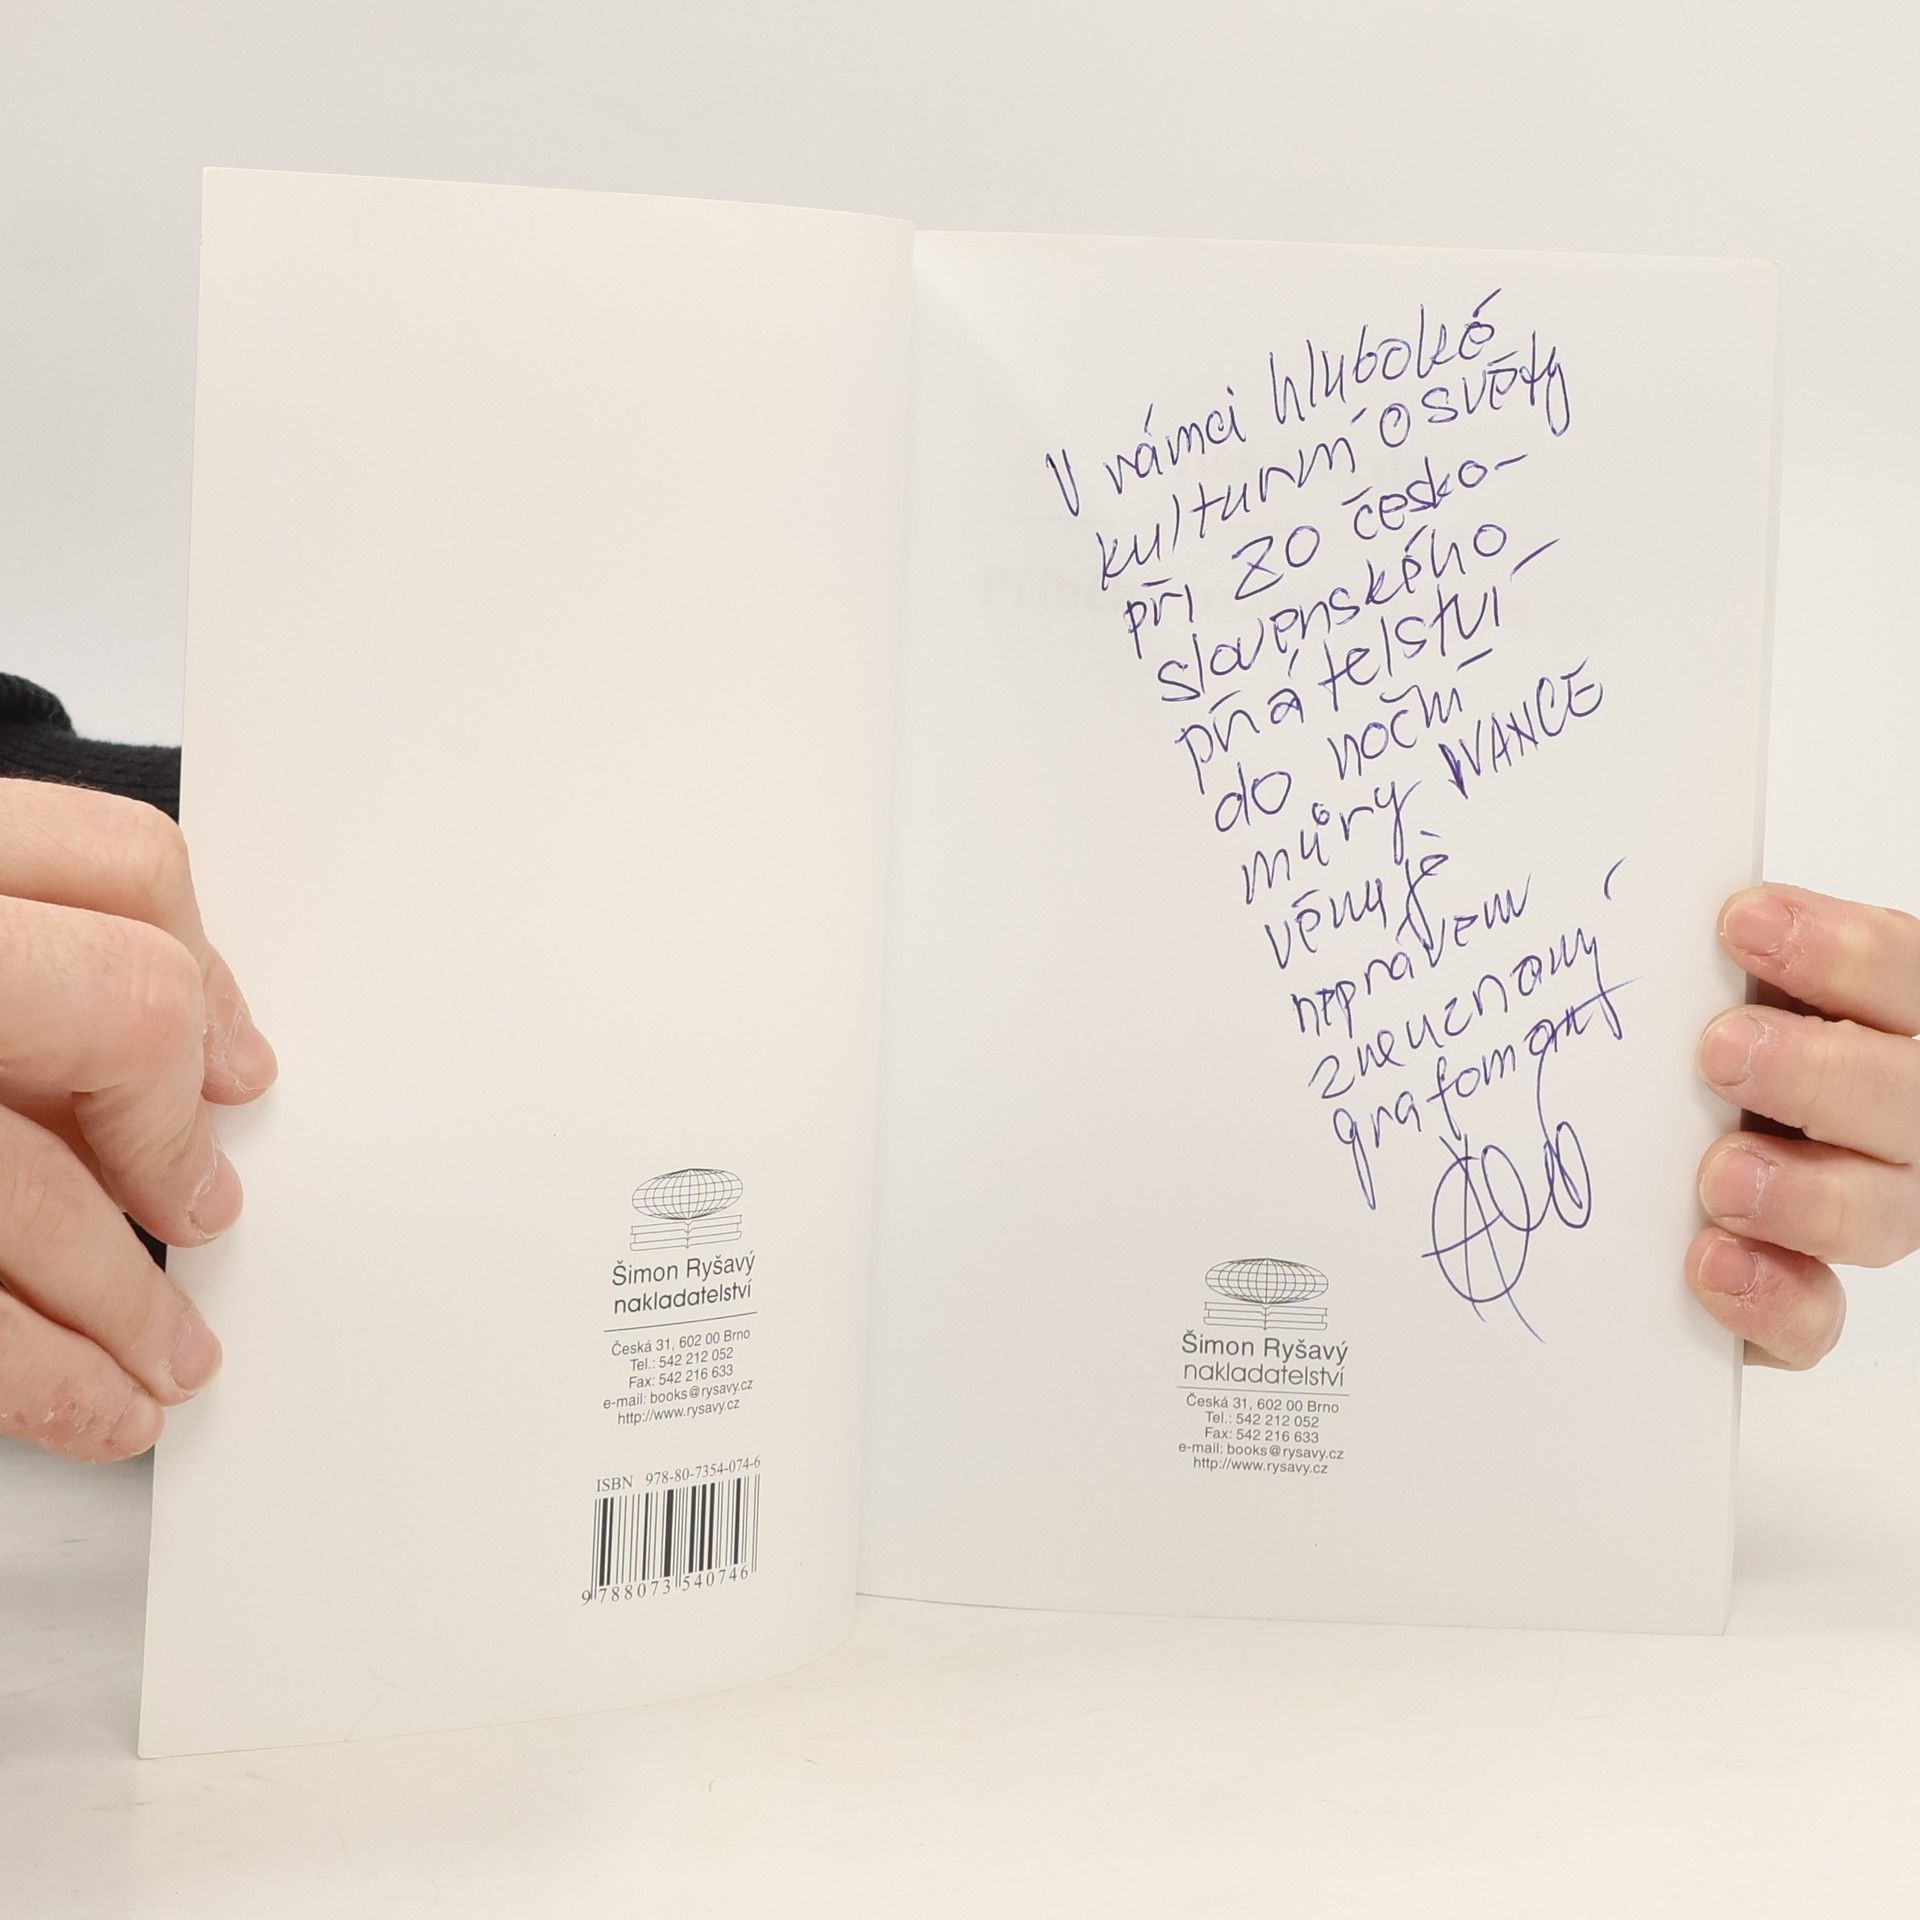 Šimon Ryšavý
nakladatelství
Česká 31, 602 00 Brno
Tel.: 542 212 052
Fax: 542 216 633
e-mail: books@rysavy.cz
http://www.rysavy.cz
ISBN 978-80-7354-074-6
9 788073 540746
V rámci hluboké
kulturní osvěty
při ZO česko-
slovenského
přátelství
do noční
můry IVANCE
věnuje
neprávem
zneuznaný
grafoman
Šimon Ryšavý
nakladatelství
Česká 31, 602 00 Brno
Tel.: 542 212 052
Fax: 542 216 633
e-mail: books@rysavy.cz
http://www.rysavy.cz